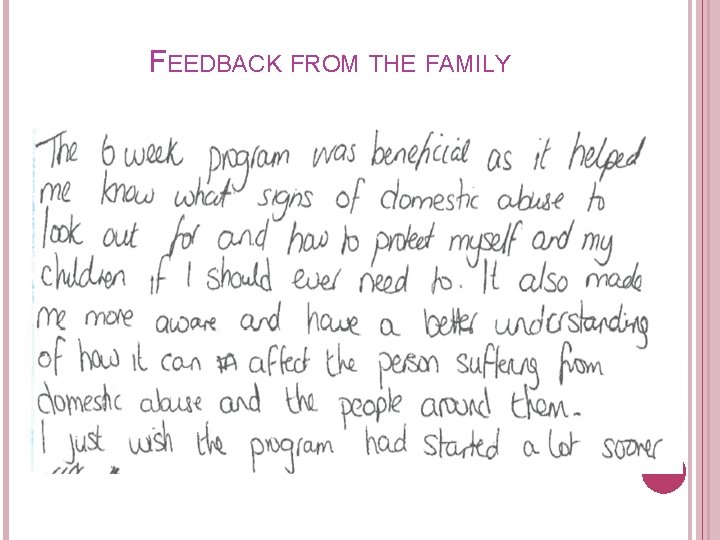 FEEDBACK FROM THE FAMILY
The 6 week program was beneficial as it helped
me know what signs of domestic abuse to
look out for and how to protect myself and my
children if I should ever need to. It also made
me more aware and have a better understanding
of how it can affect the person suffering from
domestic abuse and the people around them.
I just wish the program had started a lot sooner